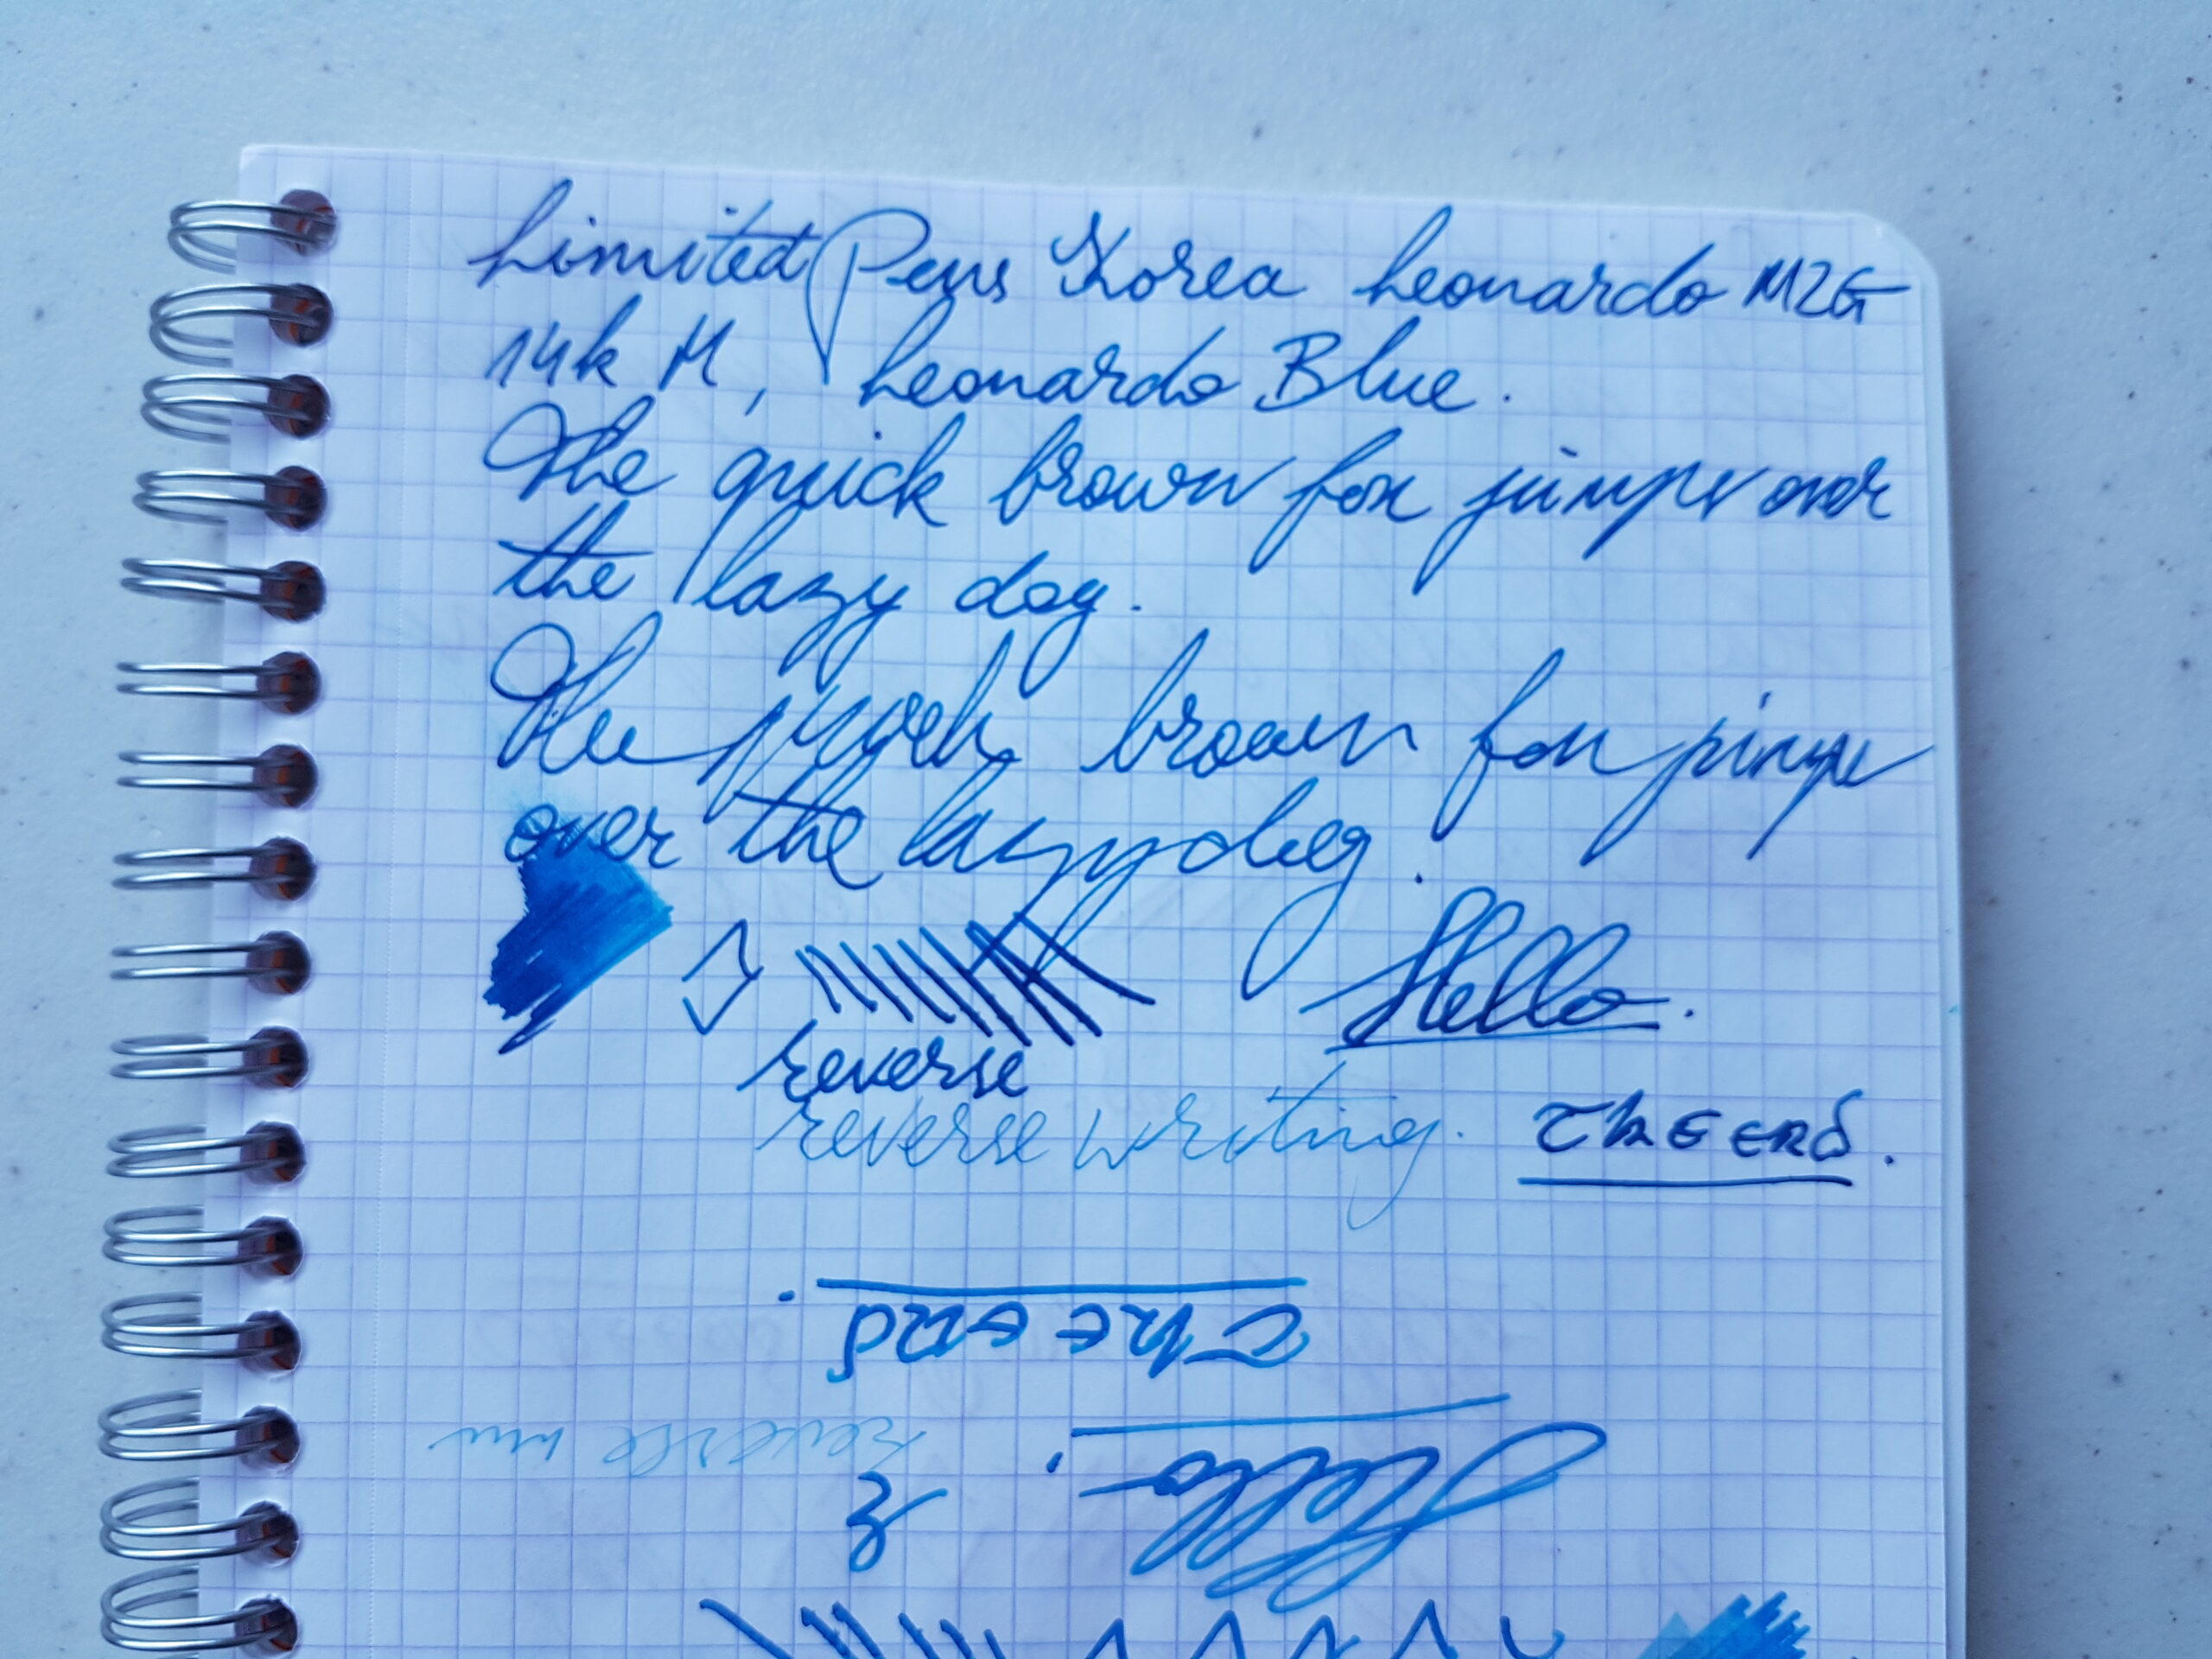 Limited Pens Korea Leonardo MZG
14k M, Leonardo Blue.
The quick brown fox jumps over
the lazy dog.
The quick brown fox jumps
over the lazy dog.
Hello.
reverse
reverse writing.
The End.
The End.
Hello.
reverse